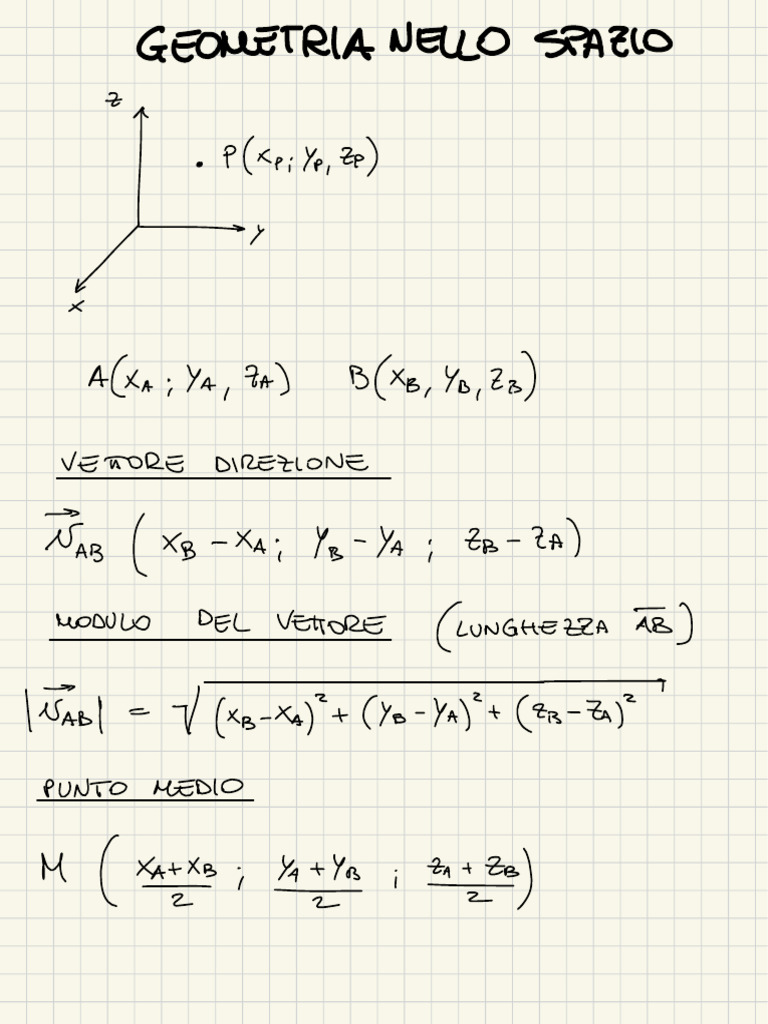 GEOMETRIA NELLO SPAZIO
z
. P(x_P; y_P, z_P)
y
x
A(x_A; y_A, z_A) B(x_B, y_B, z_B)
VETTORE DIREZIONE
\vec{v}_{AB} (x_B - x_A; y_B - y_A; z_B - z_A)
MODULO DEL VETTORE (LUNGHEZZA \overline{AB})
|\vec{v}_{AB}| = \sqrt{(x_B - x_A)^2 + (y_B - y_A)^2 + (z_B - z_A)^2}
PUNTO MEDIO
M (\frac{x_A + x_B}{2}; \frac{y_A + y_B}{2}; \frac{z_A + z_B}{2})